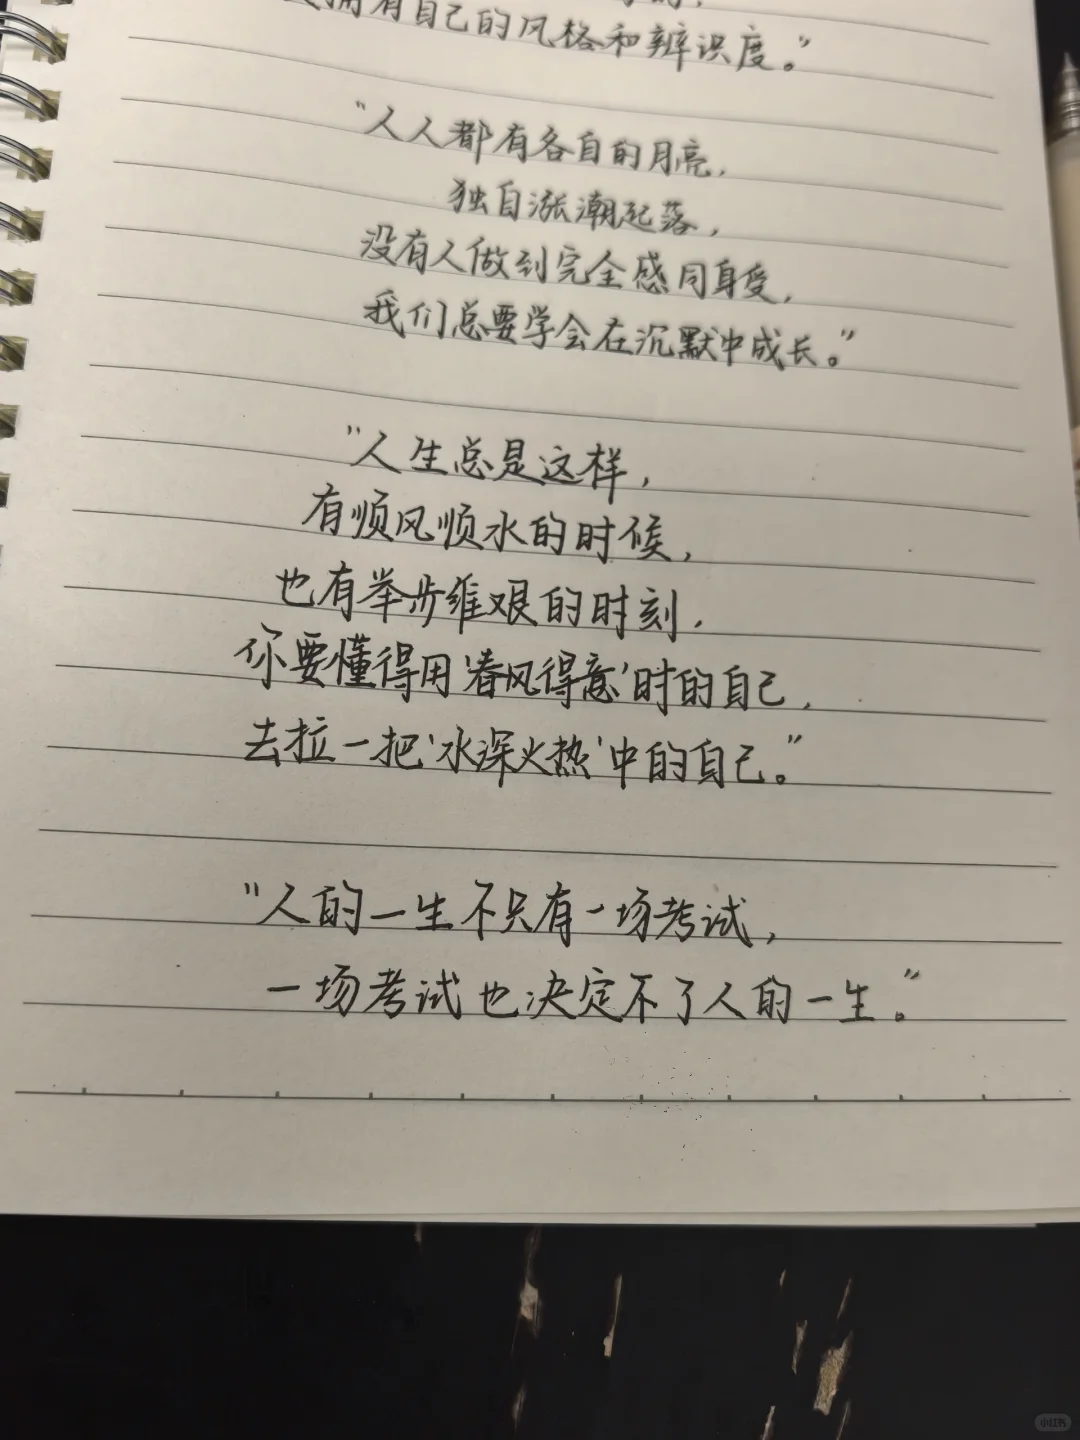 拥有自己的风格和辨识度。”
“人人都有各自的月亮，
独自涨潮起落，
没有人做到完全感同身受，
我们总要学会在沉默中成长。”
“人生总是这样，
有顺风顺水的时候，
也有举步维艰的时刻，
你要懂得用‘春风得意’时的自己，
去拉一把‘水深火热’中的自己。”
“人的一生不只有一场考试，
一场考试也决定不了人的一生。”
小红书